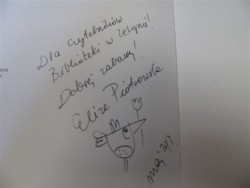 Dla Czytelników
Biblioteki w
Dobrej zabawy!
Eliza Piotrowska
maj 2013